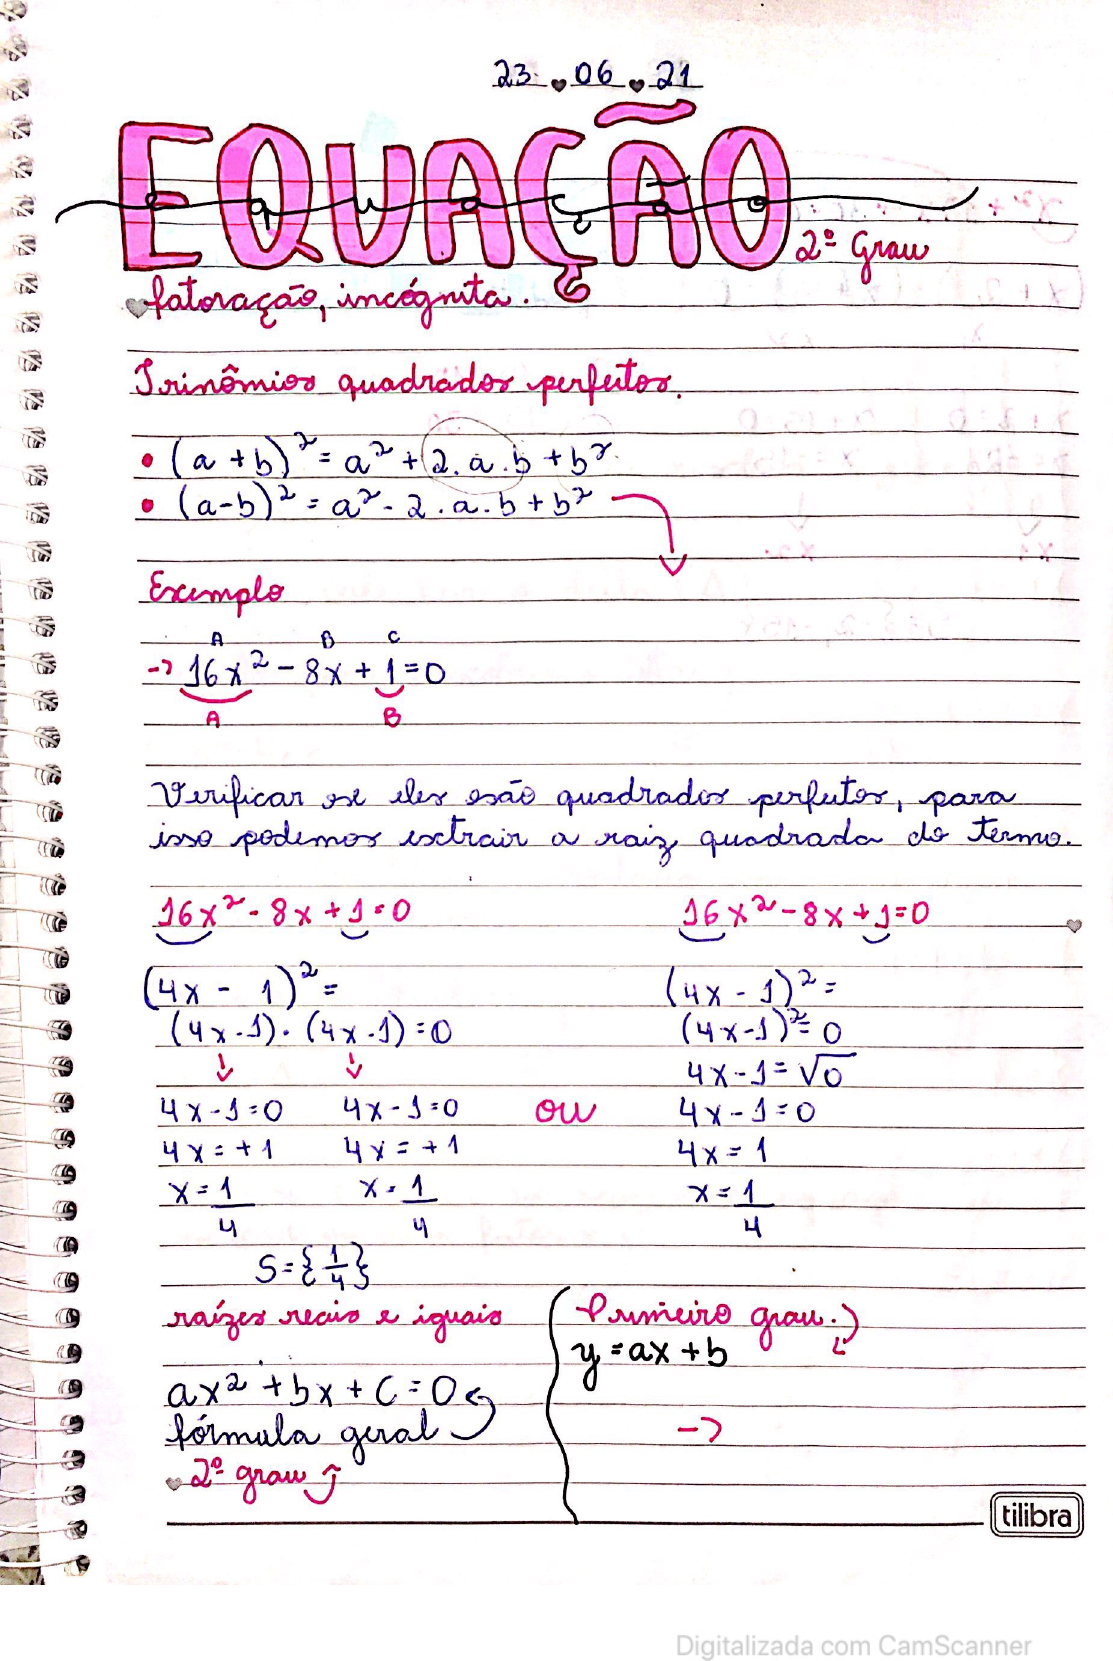 23 . 06 . 21
EQUAÇÃO
equação
2º Grau
fatoração, incógnita.
Trinômios quadrados perfeitos.
• (a + b)² = a² + 2.a.b + b²
• (a-b)² = a² - 2.a.b + b²
Exemplo
A B C
-> 16x² - 8x + 1 = 0
A B
Verificar se eles são quadrados perfeitos, para
isso podemos extrair a raiz quadrada do termo.
16x² - 8x + 1 = 0 16x² - 8x + 1 = 0
(4x - 1)² = (4x - 1)² =
(4x - 1) . (4x - 1) = 0 (4x - 1)² = 0
4x - 1 = √0
4x - 1 = 0 4x - 1 = 0 ou 4x - 1 = 0
4x = + 1 4x = + 1 4x = 1
x = 1/4 x = 1/4 x = 1/4
S = {1/4}
raízes reais e iguais
ax² + bx + c = 0
fórmula geral
2º grau
Primeiro grau.
y = ax + b
->
tilibra
Digitalizada com CamScanner